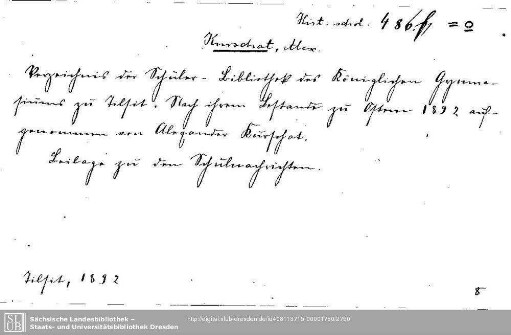 Hist. schol. 486,f = 0
Kurschat, Alex.
Verzeichnis der Schüler-Bibliothek des Königlichen Gymna-
siums zu Tilsit. Nach ihrem Bestande zu Ostern 1892 auf-
genommen von Alexander Kurschat.
Beilage zu den Schulnachrichten.
Tilsit, 1892
8
Sächsische Landesbibliothek –
Staats- und Universitätsbibliothek Dresden